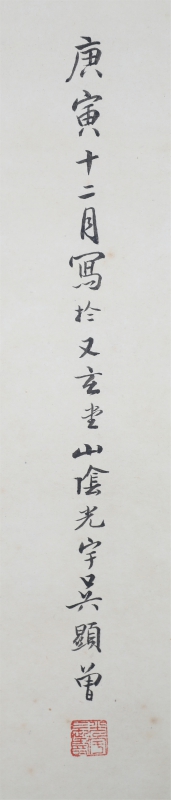 庚寅十二月寫於又玄堂山陰光宇吳顯曾